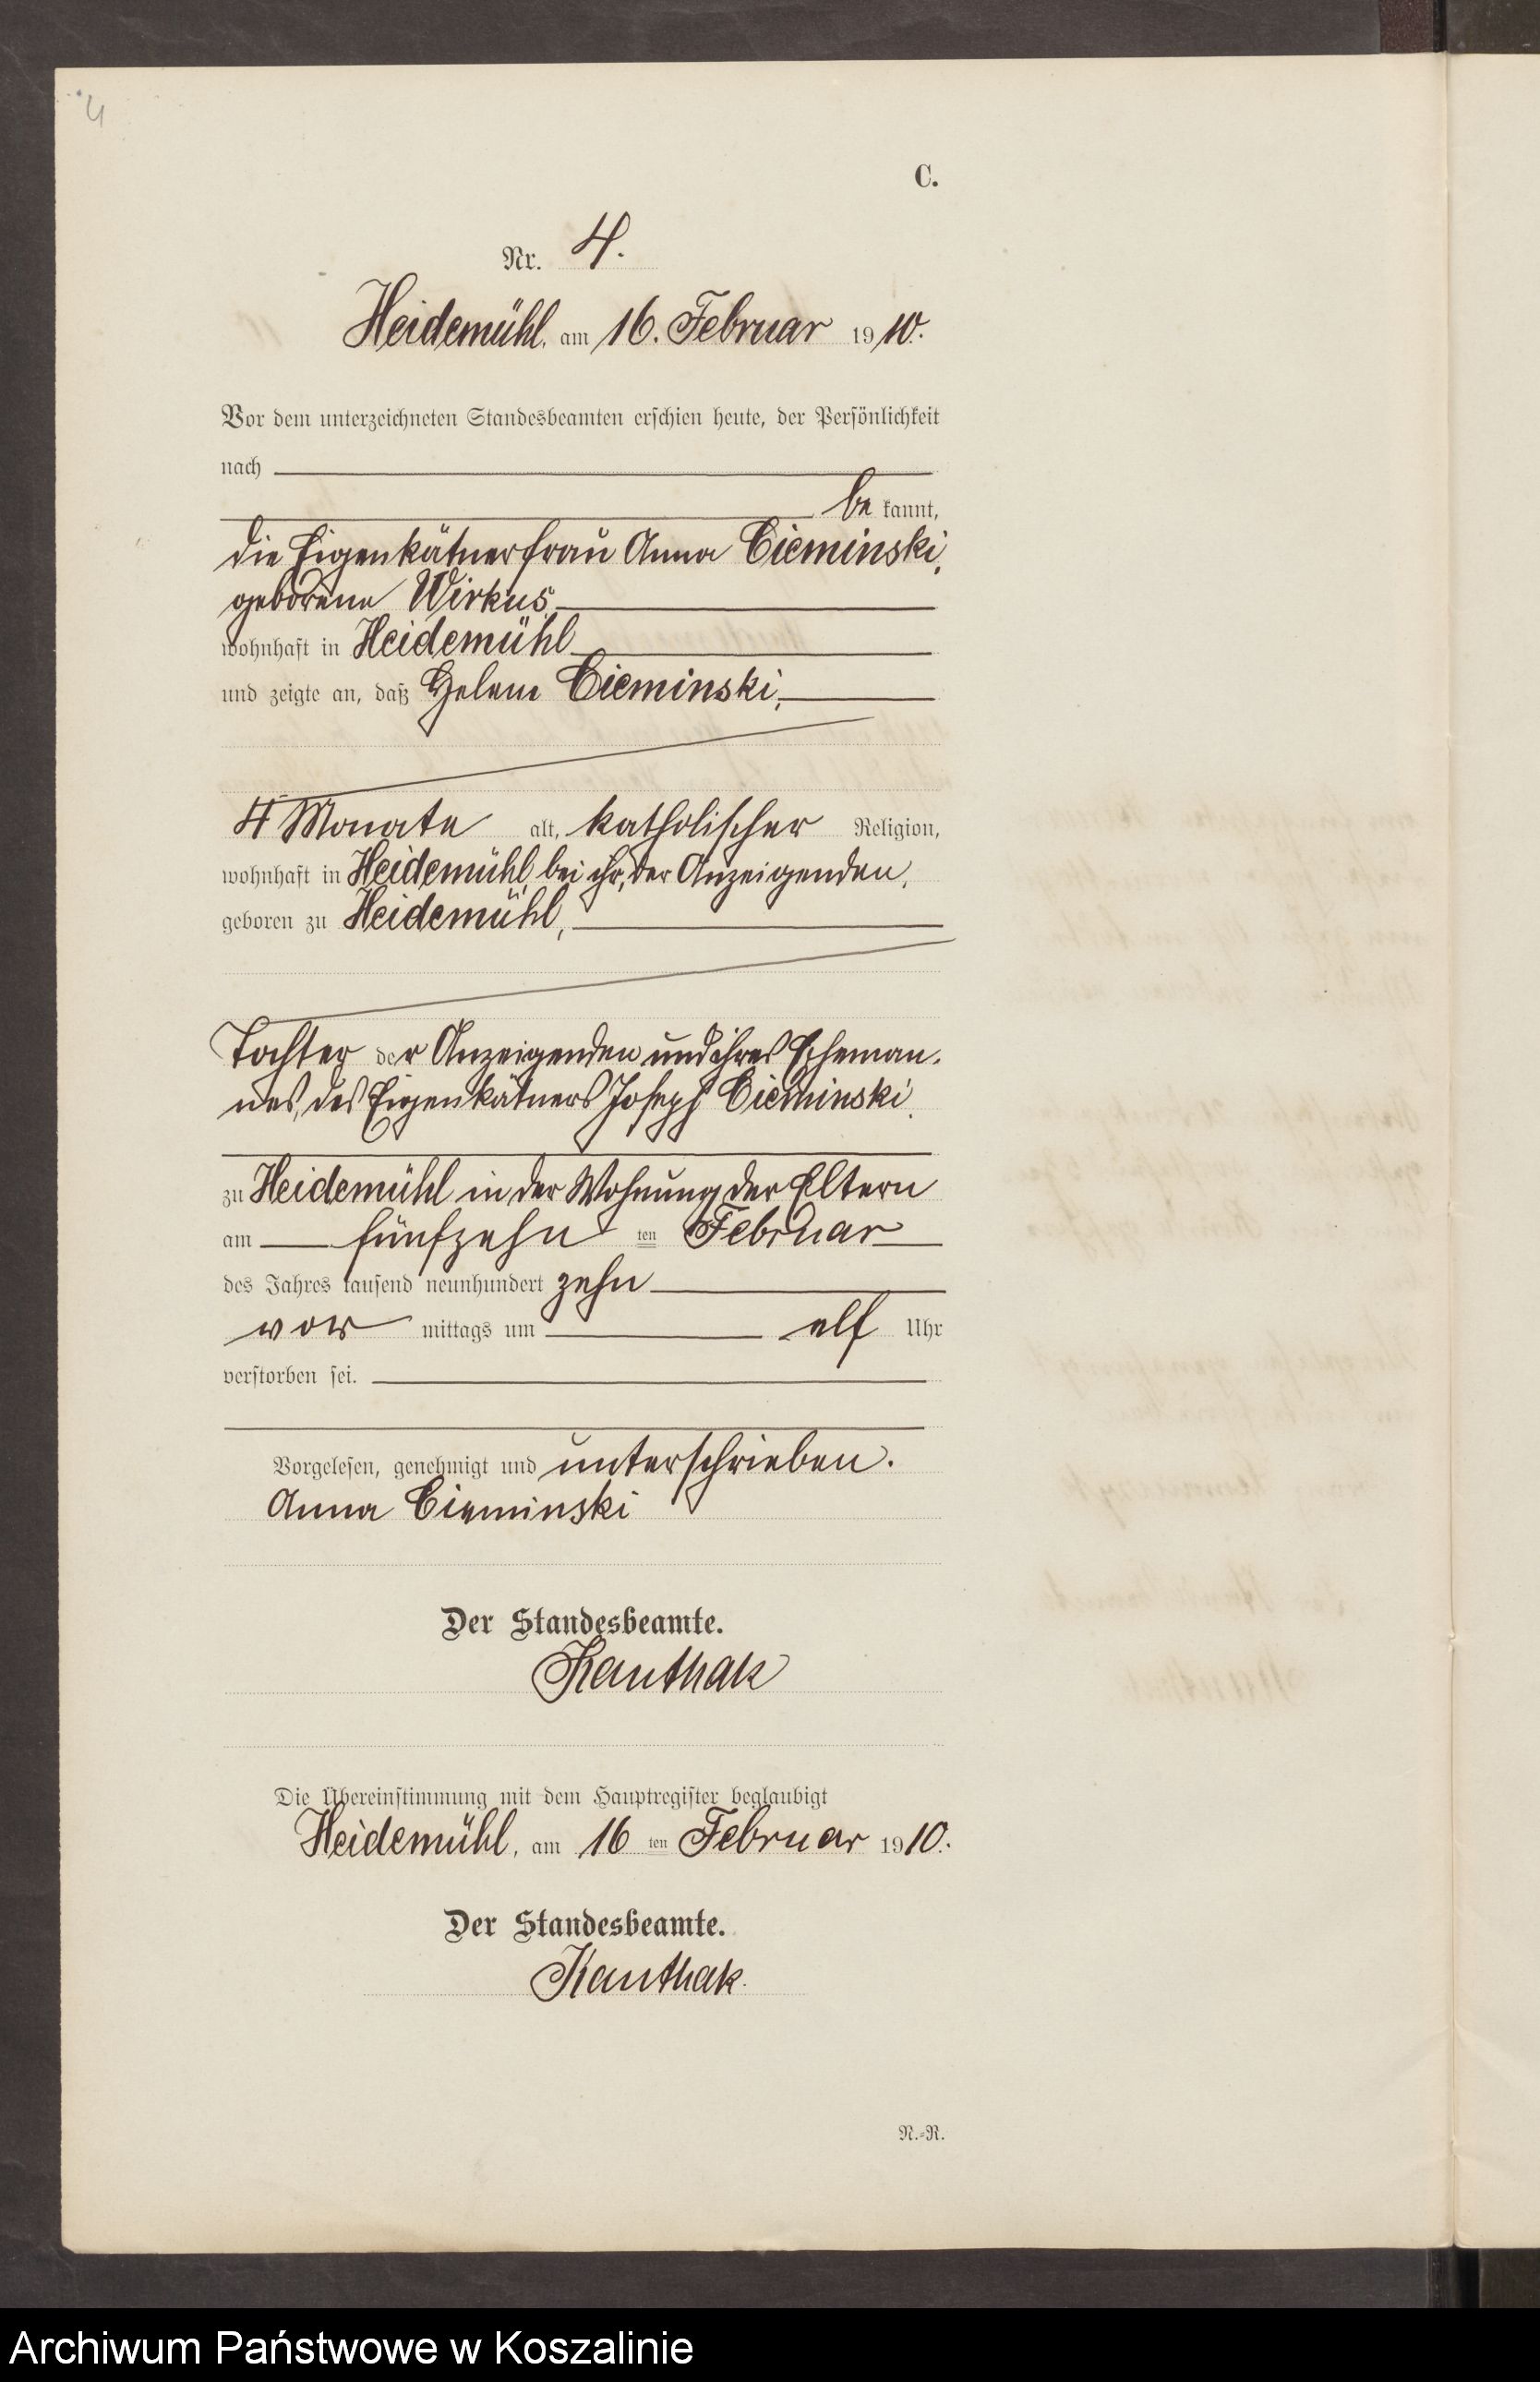 4
C.
Nr. 4.
Heidemühl, am 16. Februar 1910.
Vor dem unterzeichneten Standesbeamten erschien heute, der Persönlichkeit
nach
be kannt,
die Eigenkätnerfrau Anna Cieminski,
geborene Wirkus,
wohnhaft in Heidemühl
und zeigte an, daß Helene Cieminski,
4 Monate alt, katholischer Religion,
wohnhaft in Heidemühl, bei ihr, der Anzeigenden,
geboren zu Heidemühl,
Tochter der Anzeigenden und ihres Eheman-
nes, des Eigenkätners Joseph Cieminski,
zu Heidemühl in der Wohnung der Eltern
am fünfzehn ten Februar
des Jahres tausend neunhundert zehn
vor mittags um elf Uhr
verstorben sei.
Vorgelesen, genehmigt und unterschrieben.
Anna Cieminski
Der Standesbeamte.
Kauthak
Die Übereinstimmung mit dem Hauptregister beglaubigt
Heidemühl, am 16 ten Februar 1910.
Der Standesbeamte.
Kauthak.
N.=R.
Archiwum Państwowe w Koszalinie